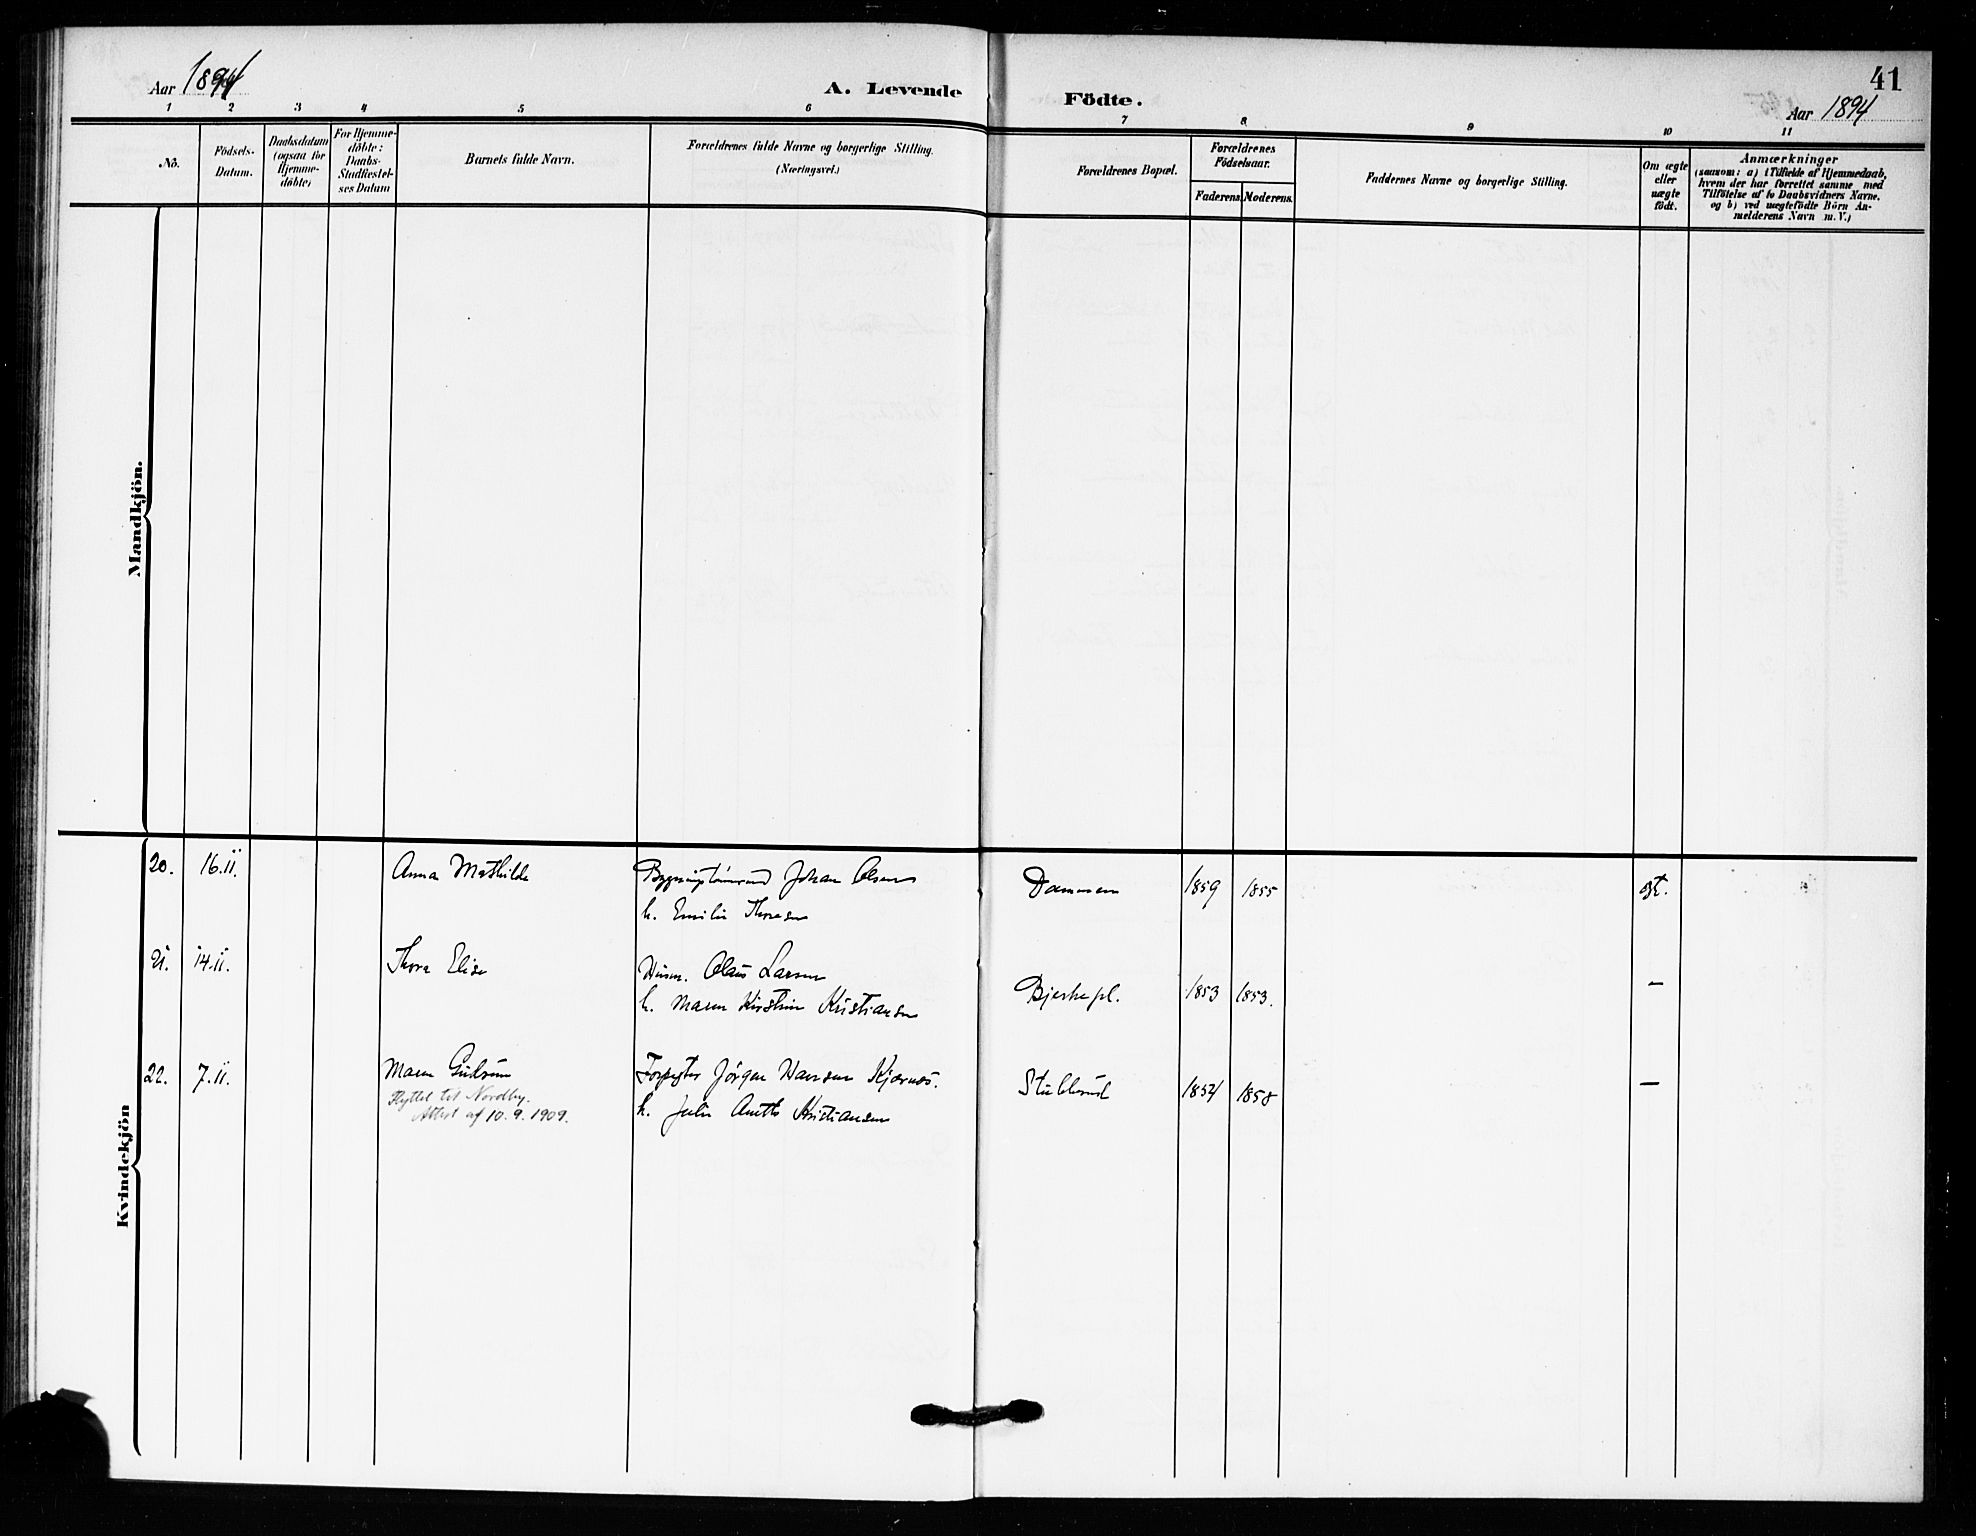 41
Aar 1894
A. Levende Födte.
Aar 1894
1 2 3 4 5 6 7 8 9 10 11
No.
Födsels-Datum.
Daabsdatum (ogsaa for Hjemme-döbte)
For Hjemme-döbte: Daabs-Stadfæstel-ses Datum
Barnets fulde Navn.
Forældrenes fulde Navne og borgerlige Stilling.
(Næringsvei.)
Forældrenes Bopæl.
Forældrenes Födselsaar.
Faderens. Moderens.
Faddernes Navne og borgerlige Stilling.
Om ægte eller uægte født.
Anmærkninger
(saasom: a) i Tilfælde af Hjemmedaab,
hvem der har forrettet samme med
Tilföielse af to Daabsvidners Navne,
og b) ved uægtefödte Börn An-
melderens Navn m. V.)
Mandkjön.
Kvindekjön
20. 16.11. Anna Mathilde Johan Olsen Dammen 1859 1855 ægt.
h. Emilie Thoresen
21. 14.11. Thora Elise Husm. Olaus Larsen
h. Maren Kirstine Kristiansen Bjerkepl. 1853 1853. —
22. 7.11. Maren Gudrun Forpagter Jörgen Hansen Kjærnes. Stubberud 1854 1858 —
Flyttet til Nordby.
Attest af 10.9.1909.
h. Julie Anette Kristiansen